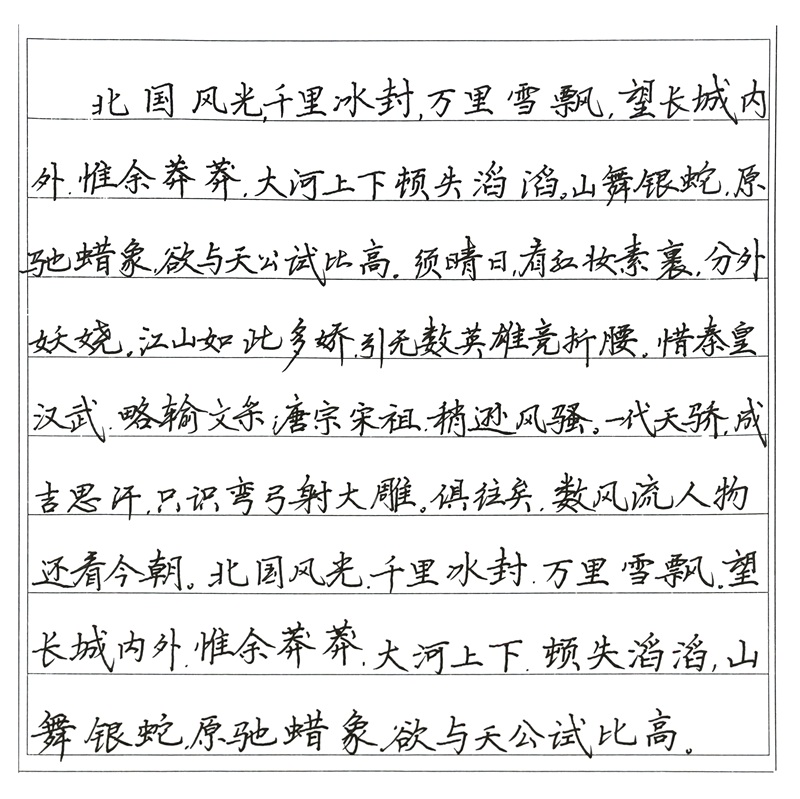 北国风光,千里冰封,万里雪飘,望长城内
外,惟余莽莽,大河上下顿失滔滔。山舞银蛇,原
驰蜡象,欲与天公试比高。须晴日,看红妆素裹,分外
妖娆。江山如此多娇,引无数英雄竞折腰。惜秦皇
汉武,略输文采;唐宗宋祖,稍逊风骚。一代天骄,成
吉思汗,只识弯弓射大雕。俱往矣,数风流人物
还看今朝。北国风光,千里冰封,万里雪飘,望
长城内外,惟余莽莽,大河上下,顿失滔滔,山
舞银蛇,原驰蜡象,欲与天公试比高。